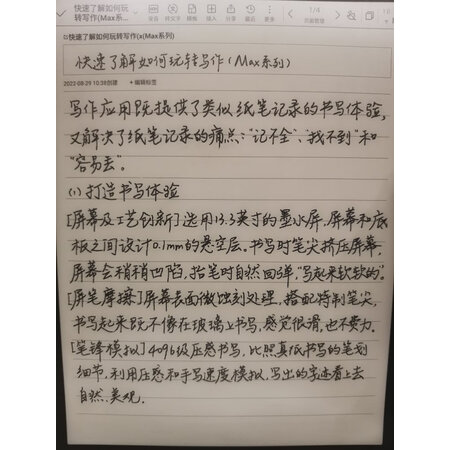 快速了解如何玩
转写作(Max系...
1/4
快速了解如何玩转写作(x(Max系列)
快速了解如何玩转写作(Max系列)
2022-08-29 10:38创建 +编辑标签
写作应用既提供了类似纸笔记录的书写体验,
又解决了纸笔记录的痛点:"记不全"、"找不到"和
"容易丢"。
(1)打造书写体验
[屏幕及工艺创新]选用13.3英寸的墨水屏,屏幕和底
板之间设计0.1mm的悬空层。书写时笔尖挤压屏幕,
屏幕会稍稍凹陷,抬笔时自然回弹,"写起来软软的"。
[屏笔摩擦]屏幕表面微蚀刻处理,搭配特制笔尖,
书写起来既不像在玻璃上书写,感觉很滑,也不费力.
[笔锋模拟]4096级压感书写,比照真纸书写的笔划
细节,利用压感和手写速度模拟,写出的字迹看上去
自然、美观.